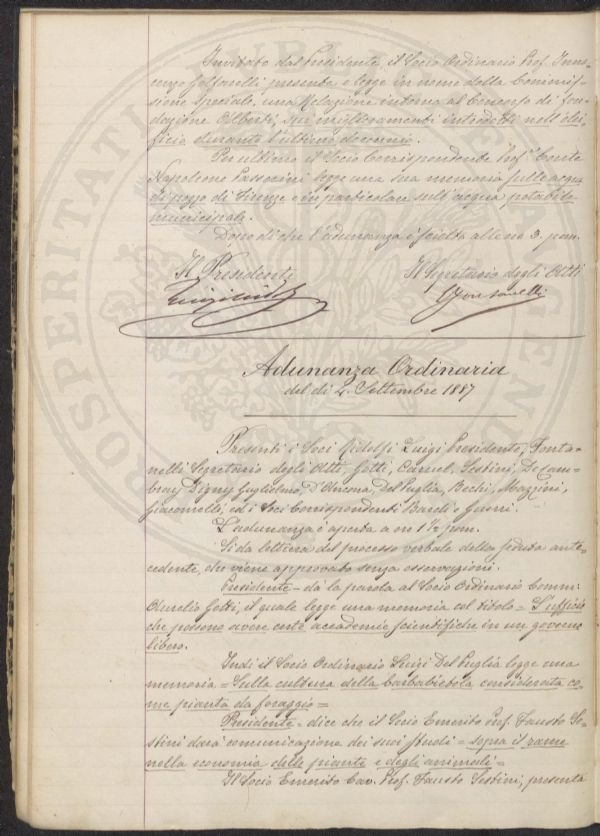 Invitato dal Presidente, il Socio Ordinario Prof. Inno-
cenzo Golfarelli presenta e legge in nome della Commis-
sione Speciale, una Relazione intorno al Concorso di fon-
dazione Alberti, sui miglioramenti introdotti nell'oli-
ficio durante l'ultimo decennio.
Per ultimo il Socio Corrispondente Prof. Conte
Napoleone Passerini legge una sua memoria sulle acque
di pozzo di Firenze e in particolare sull'acqua potabile
municipale.
Dopo di che l'adunanza è sciolta alle ore 3. pom.
Il Presidente
Il Segretario degli Atti
Luigi Ridolfi
G Fontanelli
Adunanza Ordinaria
del dì 2. Settembre 1887
Presenti i Soci Ridolfi Luigi Presidente, Fonta-
nelli Segretario degli Atti, Gotti, Caruel, Sestini, De Cam-
bray Digny Guglielmo, D'Ancona, Del Puglia, Bechi, Mazzini,
Giacomelli, ed i Soci Corrispondenti Bardi e Guerri.
L'adunanza è aperta a ore 1 1/2 pom.
Si dà lettura del processo verbale della seduta ante-
cedente, che viene approvato senza osservazioni.
Presidente - dà la parola al Socio Ordinario Comm:
Aurelio Gotti, il quale legge una memoria col titolo = L'ufficio
che possono avere certe accademie scientifiche in un governo
libero.
Indi il Socio Ordinario Luigi Del Puglia legge una
memoria = Sulla cultura della barbabietola considerata co-
me pianta da foraggio =
Presidente - dice che il Socio Emerito Prof. Fausto Se-
stini darà comunicazione dei suoi studi = sopra il rame
nella economia delle piante e degli animali =
Il Socio Emerito Cav. Prof. Fausto Sestini, presenta
PROSPERITATI PUBLICAE AUGENDAE